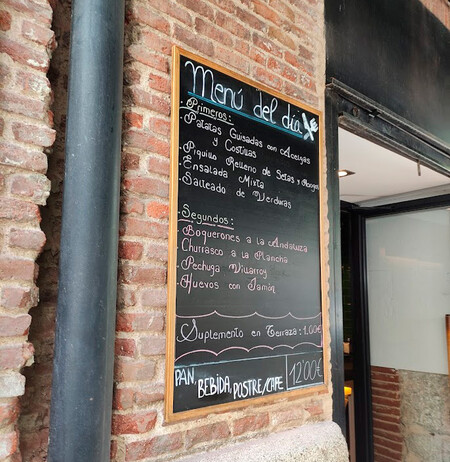 Menú del día
Primeros:
· Patatas Guisadas con Acelgas
y Costillas
· Piquillo Relleno de Setas y Mangos
· Ensalada Mixta
· Salteado de Verduras
· Segundos:
· Boquerones a la Andaluza
· Churrasco a la Plancha
· Pechuga Villarroy
· Huevos con Jamón
Suplemento en Terraza: 1.00€
PAN, BEBIDA, POSTRE/CAFE 12'00€